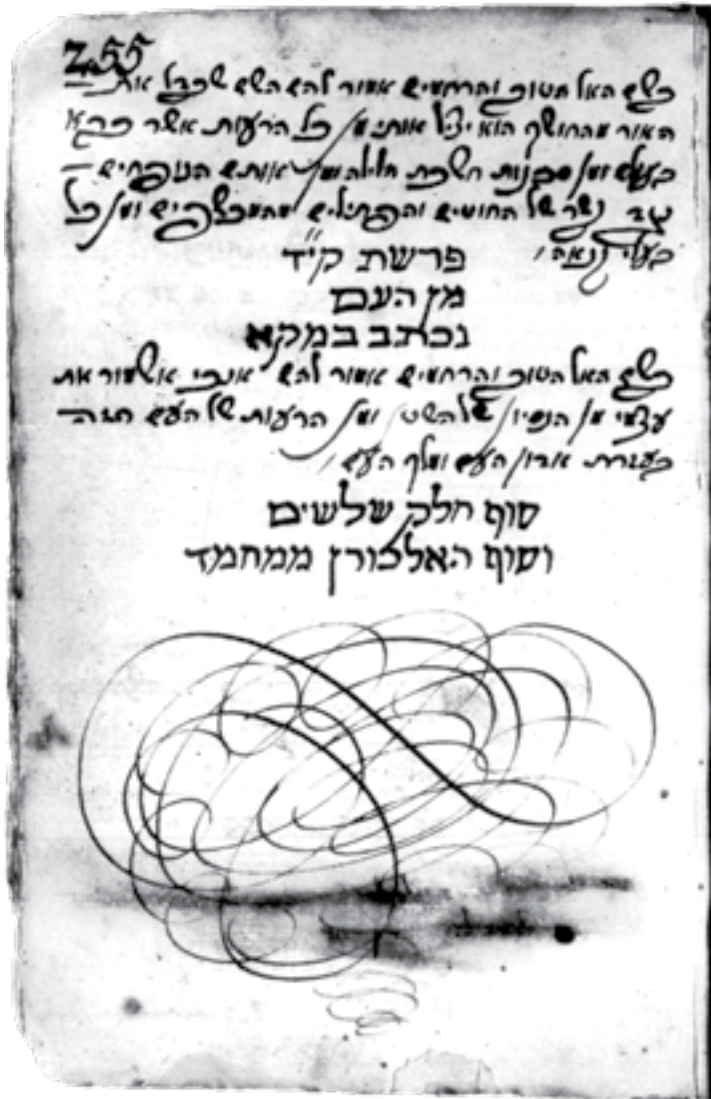 255
בשם האל הטוב והרחמים אמור להם השם שברל אות
האור מהחושך הוא יציל אותי מן כל הרעות אשר ברא
בעולם ומן סכנות חשכת הלילה ומן אותם הנופחים
של החוטים והפתילים מהמכשפים ומן כל
בעלי קנאה
פרשת קי״ד
מן העם
נכתב במקא
בשם האל הטוב והרחמים אמור להם אנכי אשמור את
עצמי מן הנסיון של השטן ומן הרעות של העם הזה
בעזרת ארון העם ומלך העם
סוף חלק שלשים
וסוף האלכורן ממחמד